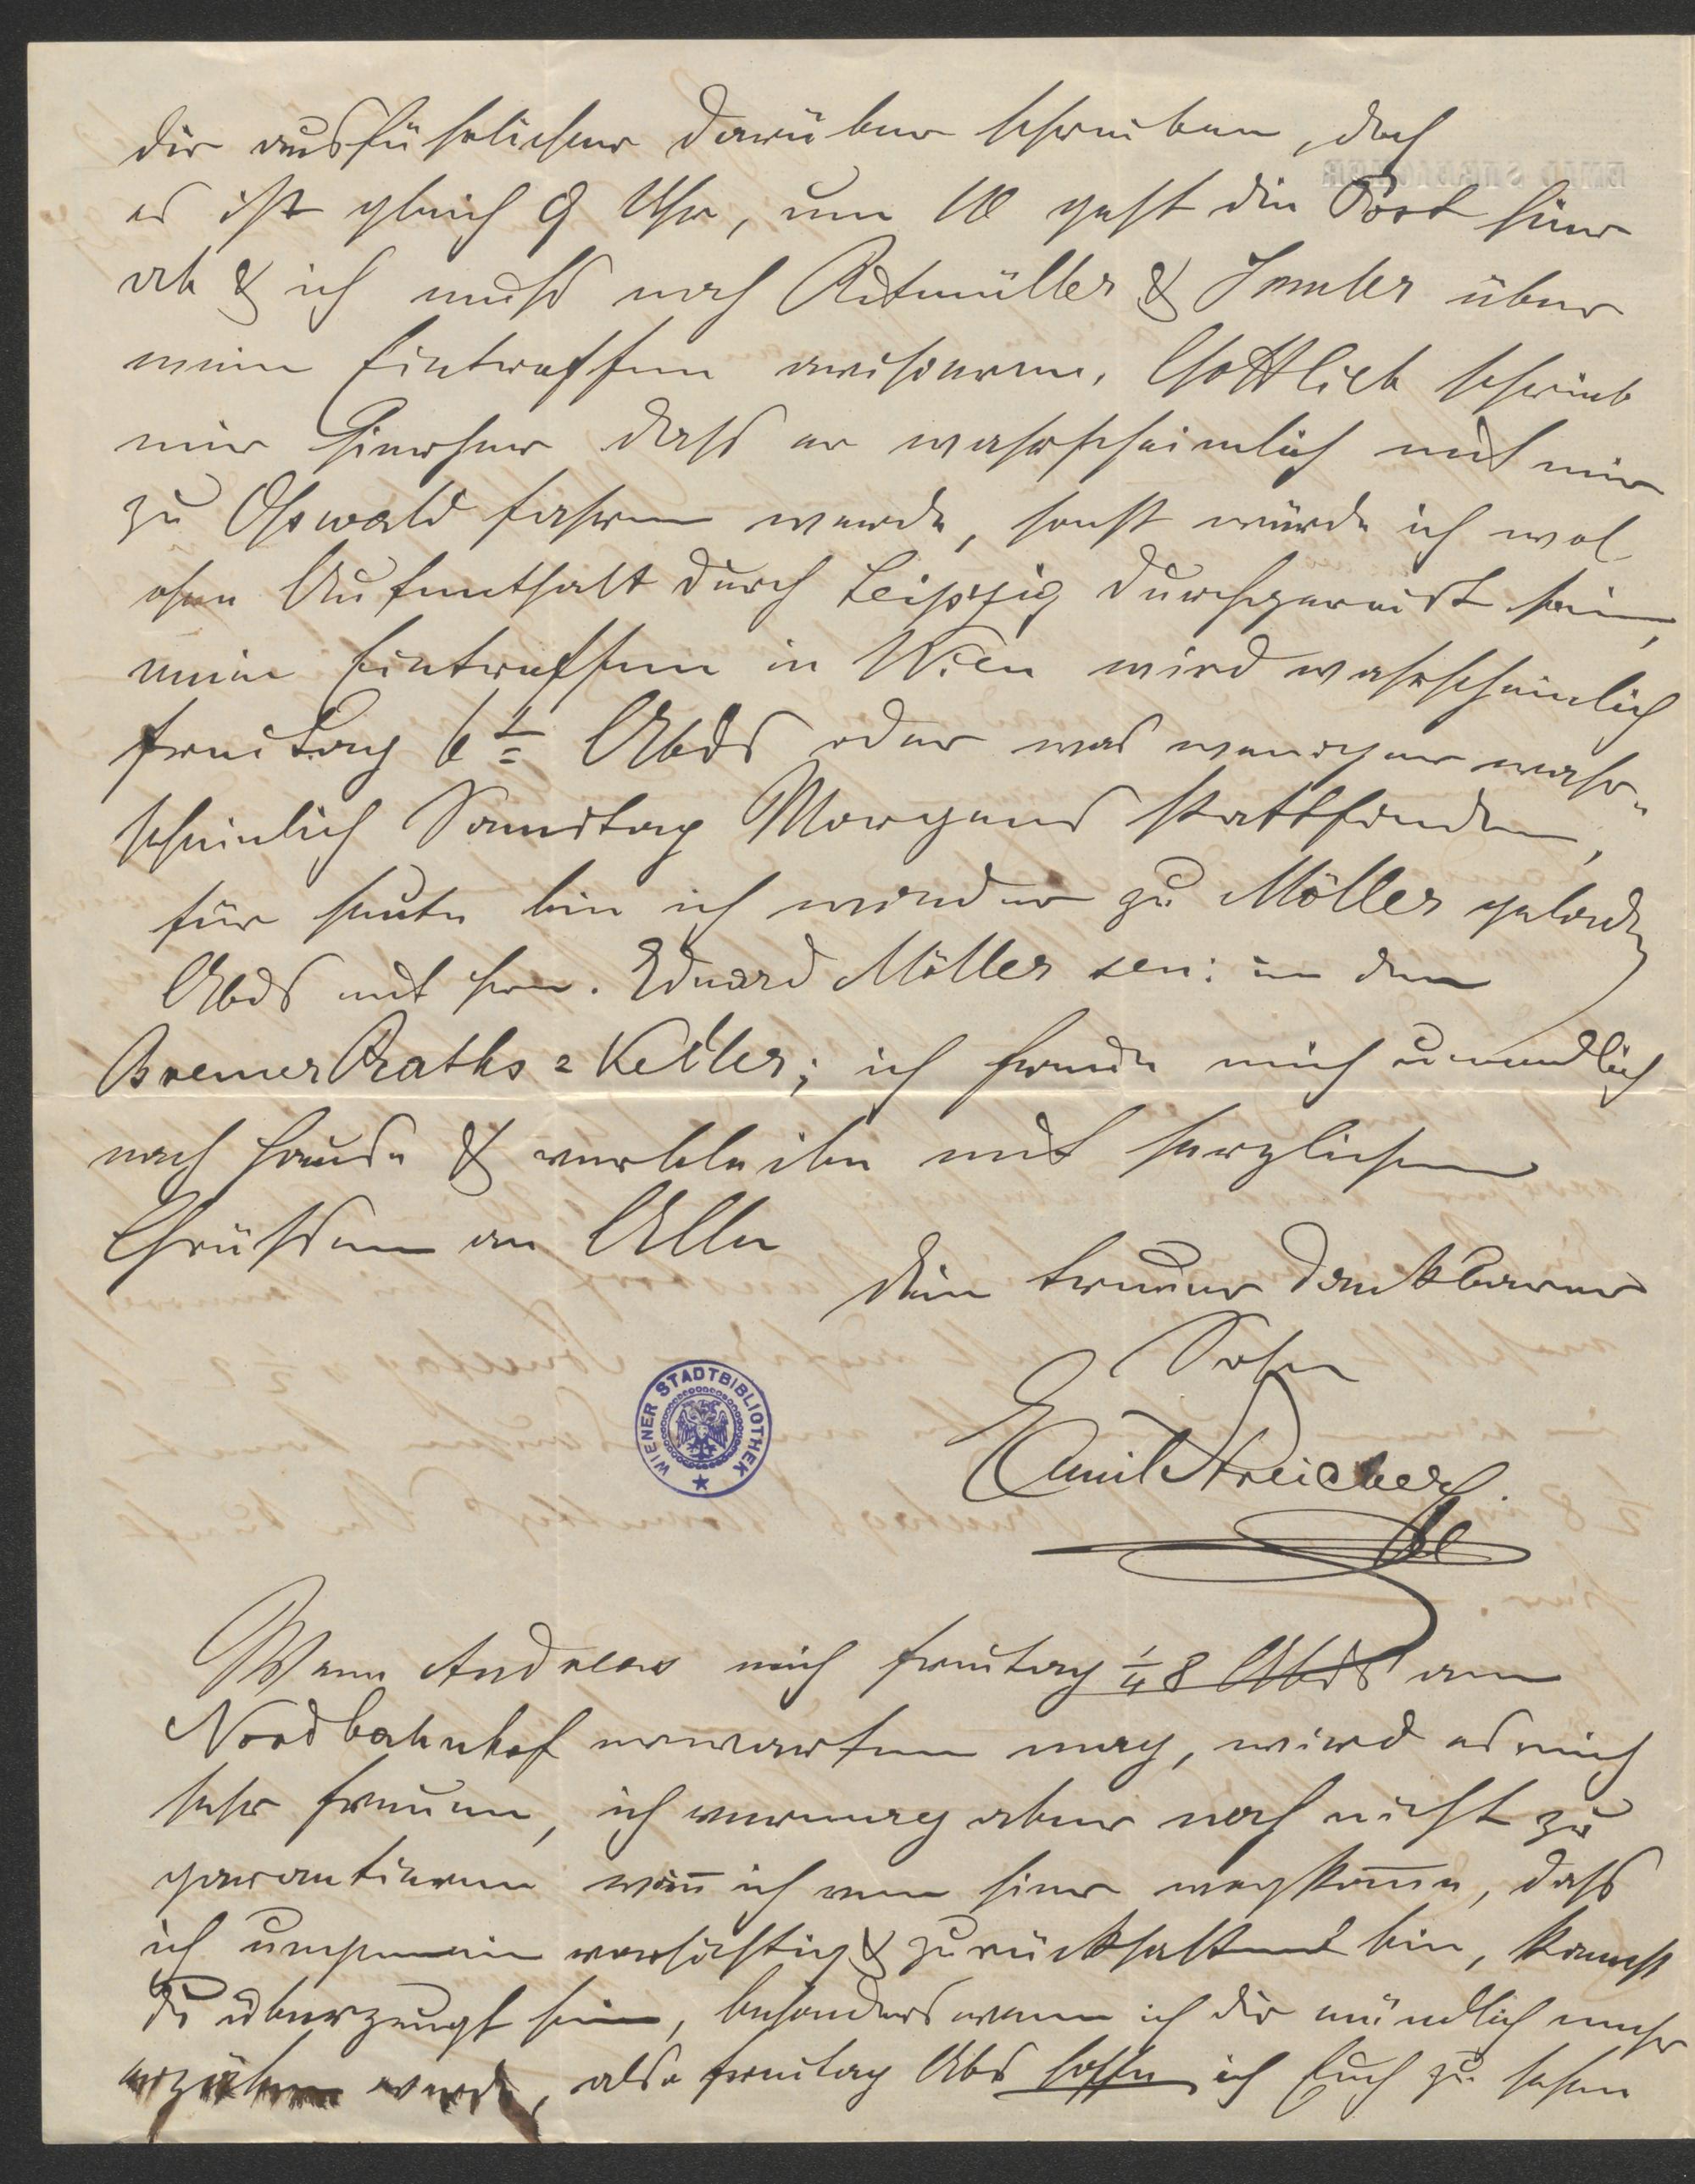 dir ausführlicher darüber schreiben, doch
es ist gleich 9 Uhr, um 10 geht die Post hier
ab & ich muß noch Ritmüller & Irmler über
mein Eintreffen avisieren. Gottlieb schrieb
mir hierher daß er wahrscheinlich mit mir
zu Oswald fahren werde, sonst würde ich wol
ohne Aufenthalt durch Leipzig durchgereist sein,
mein Eintreffen in Wien wird wahrscheinlich
Freitag 6t Abds oder was weniger wahr-
scheinlich Samstag Morgens stattfinden,
für heute bin ich wieder zu Möller geladen
Abds mit Hrn. Eduard Möller sen: in den
Bremer Raths-Keller; ich freue mich unendlich
nach Hause & verbleibe mit herzlichen
Grüßen an Alle
Dein treuer dankbarer
Sohn
Emil Streicher
WIENER STADTBIBLIOTHEK
Wenn Andreas mich Freitag ¼ 8 Abds am
Nordbahnhof erwarten mag, wird es mich
sehr freuen, ich vermag aber noch nicht zu
garantieren wañ ich von hier wegkom̄e, daß
ich ungemein vorsichtig & zurückhaltend bin, kannst
Du überzeugt sein, besonders wenn ich dir mündlich mehr
erzählen werde, also Freitag Abd hoffe ich Euch zu sehen